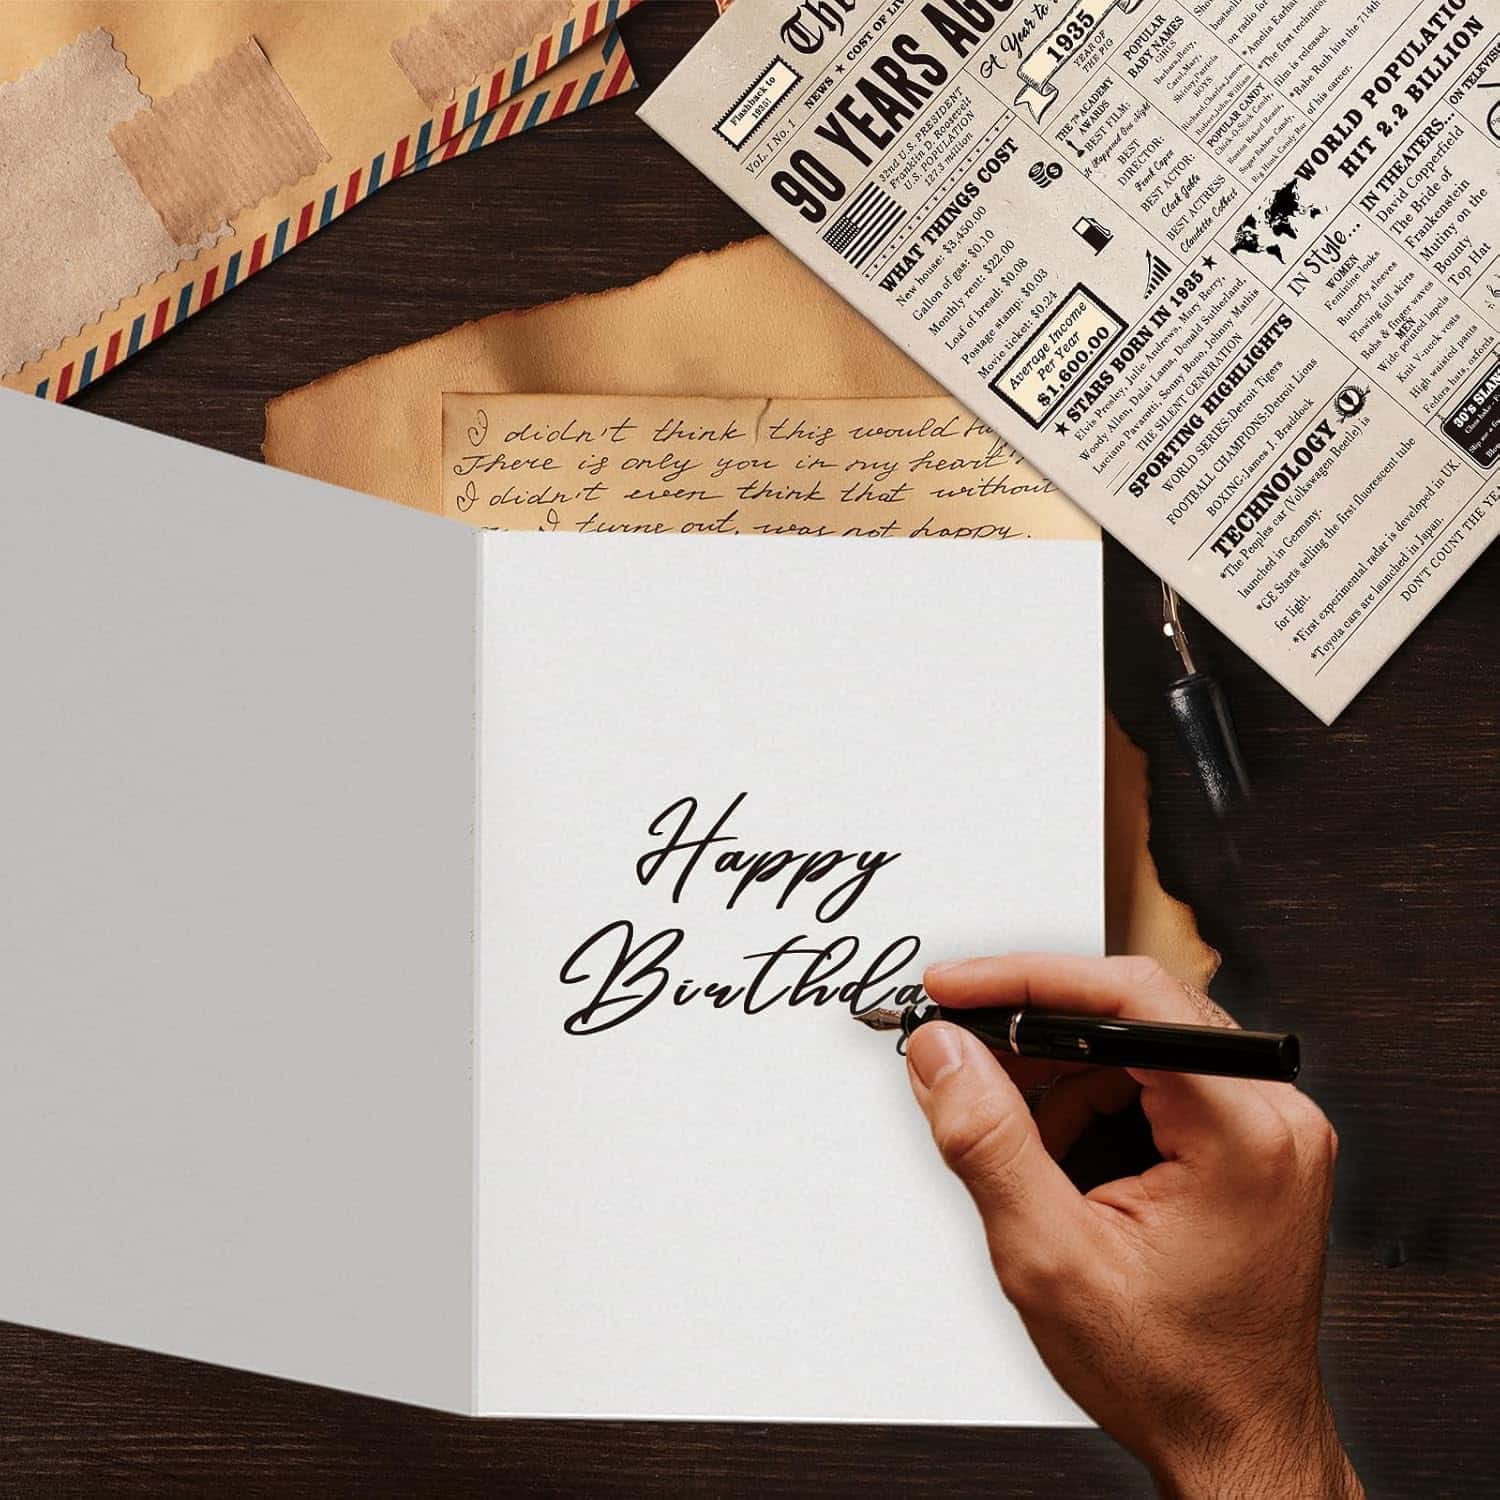 The
NEWS ★ COST OF LIV
Flashback to
1935!
VoL. 1 No. 1
90 YEARS AGO
A Year to
1935
YEAR OF
THE PIG
32nd U.S. PRESIDENT
Franklin D. Roosevelt
U.S. POPULATION
127.3 million
WHAT THINGS COST
New house: $3,450.00
Gallon of gas: $0.10
Monthly rent: $22.00
Loaf of bread: $0.08
Postage stamp: $0.03
Movie ticket: $0.24
Average Income
Per Year
$1,600.00
THE 7th ACADEMY
AWARDS
BEST FILM:
It Happened One Night
BEST
DIRECTOR:
Frank Capra
BEST ACTOR:
Clark Gable
BEST ACTRESS
Claudette Colbert
POPULAR
BABY NAMES
GIRLS
Barbara, Betty,
Carol, Mary,
Shirley, Patricia
BOYS
Richard, Charles, James,
Robert, John, William
POPULAR CANDY
Chick-O-Stick Candy,
Boston Baked Beans,
Sugar Babies Candy,
Big Hunk Candy Bar
bestselling
on radio for
*Amelia Earha
*The first technicolo
film is released.
*Babe Ruth hits the 714th
of his career.
WORLD POPULATIO
HIT 2.2 BILLION
★ STARS BORN IN 1935 ★
Elvis Presley, Julie Andrews, Mary Berry,
Woody Allen, Dalai Lama, Donald Sutherland,
Luciano Pavarotti, Sonny Bono, Johnny Mathis
THE SILENT GENERATION
SPORTING HIGHLIGHTS
WORLD SERIES-Detroit Tigers
FOOTBALL CHAMPIONS-Detroit Lions
BOXING-James J. Braddock
TECHNOLOGY
*The Peoples car (Volkswagen Beetle) is
launched in Germany.
*GE Starts selling the first fluorescent tube
for light.
*First experimental radar is developed in UK.
*Toyota cars are launched in Japan.
IN Style...
WOMEN
Feminine looks
Butterfly sleeves
Flowing full skirts
Bobs & finger waves
MEN
Wide pointed lapels
Knit V-neck vests
High waisted pants
Fedora hats, oxfords
IN THEATERS...
David Copperfield
The Bride of
Frankenstein
Mutiny on the
Bounty
Top Hat
ON TELEVISI
30'S SLAN
DON'T COUNT THE YE
I didn't think this would
There is only you in my heart
I didn't even think that without
I turne out, was not happy.
Happy
Birthda